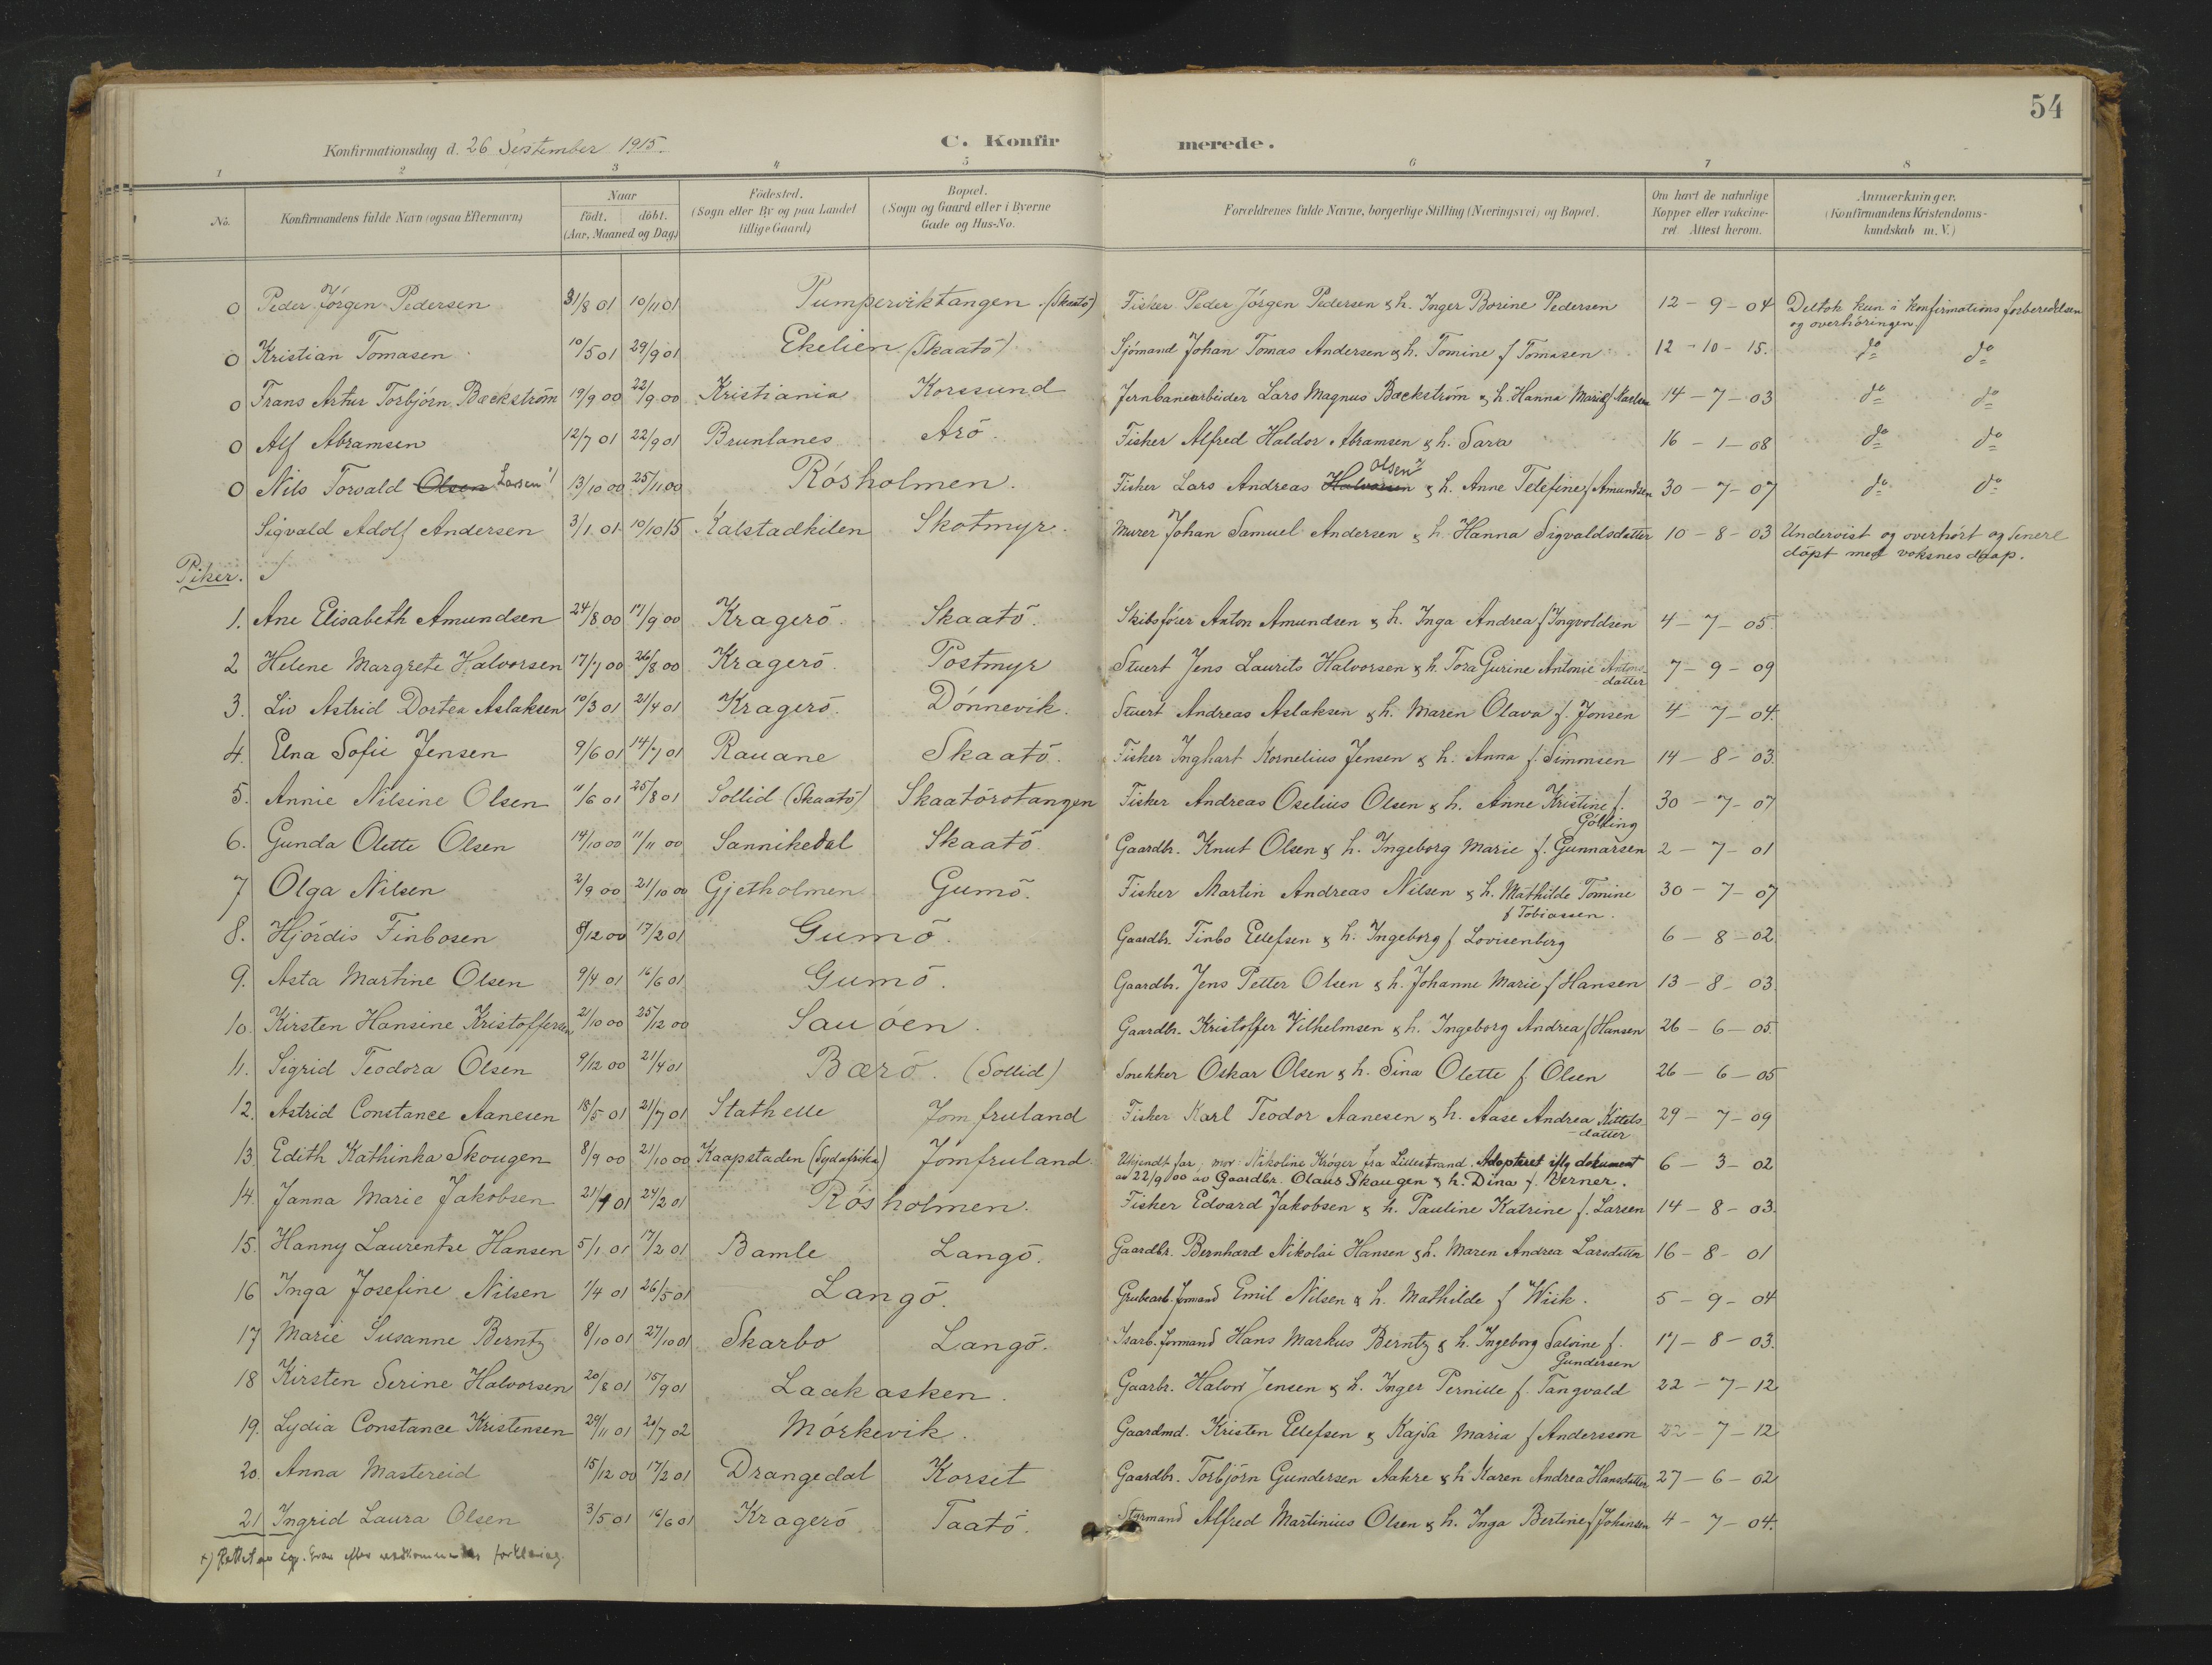 54
Konfirmationsdag d. 26 September 1915.
C. Konfirmerede.
1 2 3 4 5 6 7 8
No. Konfirmandens fulde Navn (ogsaa Efternavn) Naar født. døbt. (Aar, Maaned og Dag) Födested. (Sogn eller By og paa Landet tillige Gaard) Bopæl. (Sogn og Gaard eller i Byerne Gade og Hus-No. Forældrenes fulde Navne, borgerlige Stilling (Næringsvei) og Bopæl. Om havt de naturlige Kopper eller vakcineret Attest herom. Anmærkninger. (Konfirmandens Kristendomskundskab m. V.)
0 Peder Jörgen Pedersen 31/8 01 10/11 01 Pumperviktangen (Skaatö) Fisker Peder Jörgen Pedersen & h. Inger Borine Pedersen 12 - 9 - 04 Deltok kun i konfirmationsforberedelsen
og overhöringen.
0 Kristian Tomasen 10/5 01 29/9 01 Ekelien (Skaatö) Sjömand Johan Tomas Andersen & h. Tomine f Tomasen 12 - 10 - 15. do do
0 Frans Artur Torbjörn Backström 19/9 00 22/9 00 Kristiania Korssund Jernbanearbeider Lars Magnus Backström & h. Hanna Marie f 14 - 7 - 03 do do
0 Alf Abramsen 12/7 01 22/9 01 Brunlanes Arö Fisker Alfred Haldor Abramsen & h. Sara 16 - 1 - 08 do do
0 Nils Torvald Olsen Larsen 13/10 00 25/11 00 Rösholmen. Fisker Lars Andreas Halvorsen Olsen & h. Anne Telefine f Amundsen 30 - 7 - 07 do do
Sigvald Adolf Andersen 3/1 01 10/10 15 Kalstadkilen Skotmyr. Murer Johan Samuel Andersen & h. Hanna Sigvaldsdatter 10 - 8 - 03 Undervist og overhört og senere
döpt med voksnes daap.
Piker.
1. Ane Elisabeth Amundsen 24/8 00 17/9 00 Kragerö. Skaatö. Skibsförer Anton Amundsen & h. Inga Andrea f Ingvoldsen 4 - 7 - 05.
2 Helene Margrete Halvorsen 17/7 00 26/8 00 Kragerö. Postmyr Stuert Jens Laurits Halvorsen & h. Tora Gurine Antonie Antons-
datter 7 - 9 - 09
3. Liv Astrid Dortea Aslaksen 10/3 01 21/4 01 Kragerö. Dönnevik. Stuert Andreas Aslaksen & h. Maren Olava f. Jonsen 4 - 7 - 04.
4. Elna Sofie Jensen 9/6 01 14/7 01 Rauane Skaatö. Fisker Inghart Kornelius Jensen & h. Anna f. Simonsen 14 - 8 - 03.
5. Annie Nilsine Olsen 11/6 01 25/8 01 Sollid (Skaatö) Skaatörotangen Fisker Andreas Oselius Olsen & h. Anne Kristine f.
Götting 30 - 7 - 07
6. Gunda Olette Olsen 14/10 00 11/11 00 Sannikedal Skaatö. Gaardbr. Knut Olsen & h. Ingeborg Marie f. Gunnarsen 2 - 7 - 01
7 Olga Nilsen 2/9 00 21/10 00 Gjetholmen Gumö. Fisker Martin Andreas Nilsen & h. Mathilde Tomine
f Tobiassen. 30 - 7 - 07
8. Hjördis Finbosen 8/12 00 17/2 01 Gumö. Gaardbr. Finbo Ellefsen & h. Ingeborg f Lovisenberg 6 - 8 - 02
9. Asta Martine Olsen 9/4 01 16/6 01 Gumö. Gaardbr. Jens Petter Olsen & h. Johanne Marie f Hansen 13 - 8 - 03.
10. Kirsten Hansine Kristoffersen 21/10 00 25/12 00 Sauöen. Gaardbr. Kristoffer Vilhelmsen & h. Ingeborg Andrea f Hansen 26 - 6 - 05.
11. Sigrid Teodora Olsen 9/12 00 21/4 01 Bærö. (Sollid) Snekker Oskar Olsen & h. Sina Olette f. Olsen 26 - 6 - 05
12. Astrid Constance Aanesen 18/5 01 21/7 01 Stathelle Jomfruland Fisker Karl Teodor Aanesen & h. Aase Andrea Kittels-
datter 29 - 7 - 09
13. Edith Kathinka Skougen 8/9 00 21/10 00 Kaapstaden (Sydafrika) Jomfruland. Ukjendt far, mor: Nikoline Kröger fra Lillestrand. Adopteret iflg dokument
av 22/9 00 av Gaardbr. Olaus Skaugen & h. Dina f. Berner. 6 - 3 - 02
14. Janna Marie Jakobsen 21/1 01 24/2 01 Rösholmen. Fisker Edvard Jakobsen & h. Pauline Katrine f. Larsen 14 - 8 - 03.
15. Hanny Laurentse Hansen 5/1 01 17/2 01 Bamle Langö. Gaardbr. Bernhard Nikolai Hansen & h. Maren Andrea Larsdatter 16 - 8 - 01
16 Inga Josefine Nilsen 1/4 01 26/5 01 Langö. Grubearb. formand Emil Nilsen & h. Mathilde f Wiik. 5 - 9 - 04
17 Marie Susanne Berntz 8/10 01 27/10 01 Skarbo Langö. Isarb. formand Hans Markus Berntz & h. Ingeborg Salvine f.
Gundersen 17 - 8 - 03.
18 Kirsten Serine Halvorsen 20/8 01 15/9 01 Laakasken. Gaarbr. Halvor Jensen & h. Inger Pernille f. Tangvald 22 - 7 - 12
19. Lydia Constance Kristensen 29/11 01 20/7 02 Mörkevik. Gaardmd. Kristen Ellefsen & Kajsa Maria f Andersson 22 - 7 - 12
20. Anna Mastereid 15/12 00 17/2 01 Drangedal Korset Gaardbr. Torbjörn Gundersen Aakre & h Karen Andrea Hansdatter 27 - 6 - 02
21 Ingrid Laura Olsen 3/5 01 16/6 01 Kragerö Taatö. Styrmand Alfred Martinius Olsen & h. Inga Bertine f Johinsen 4 - 7 - 04.
x) Rettet av efter vedkommendes forklaring.